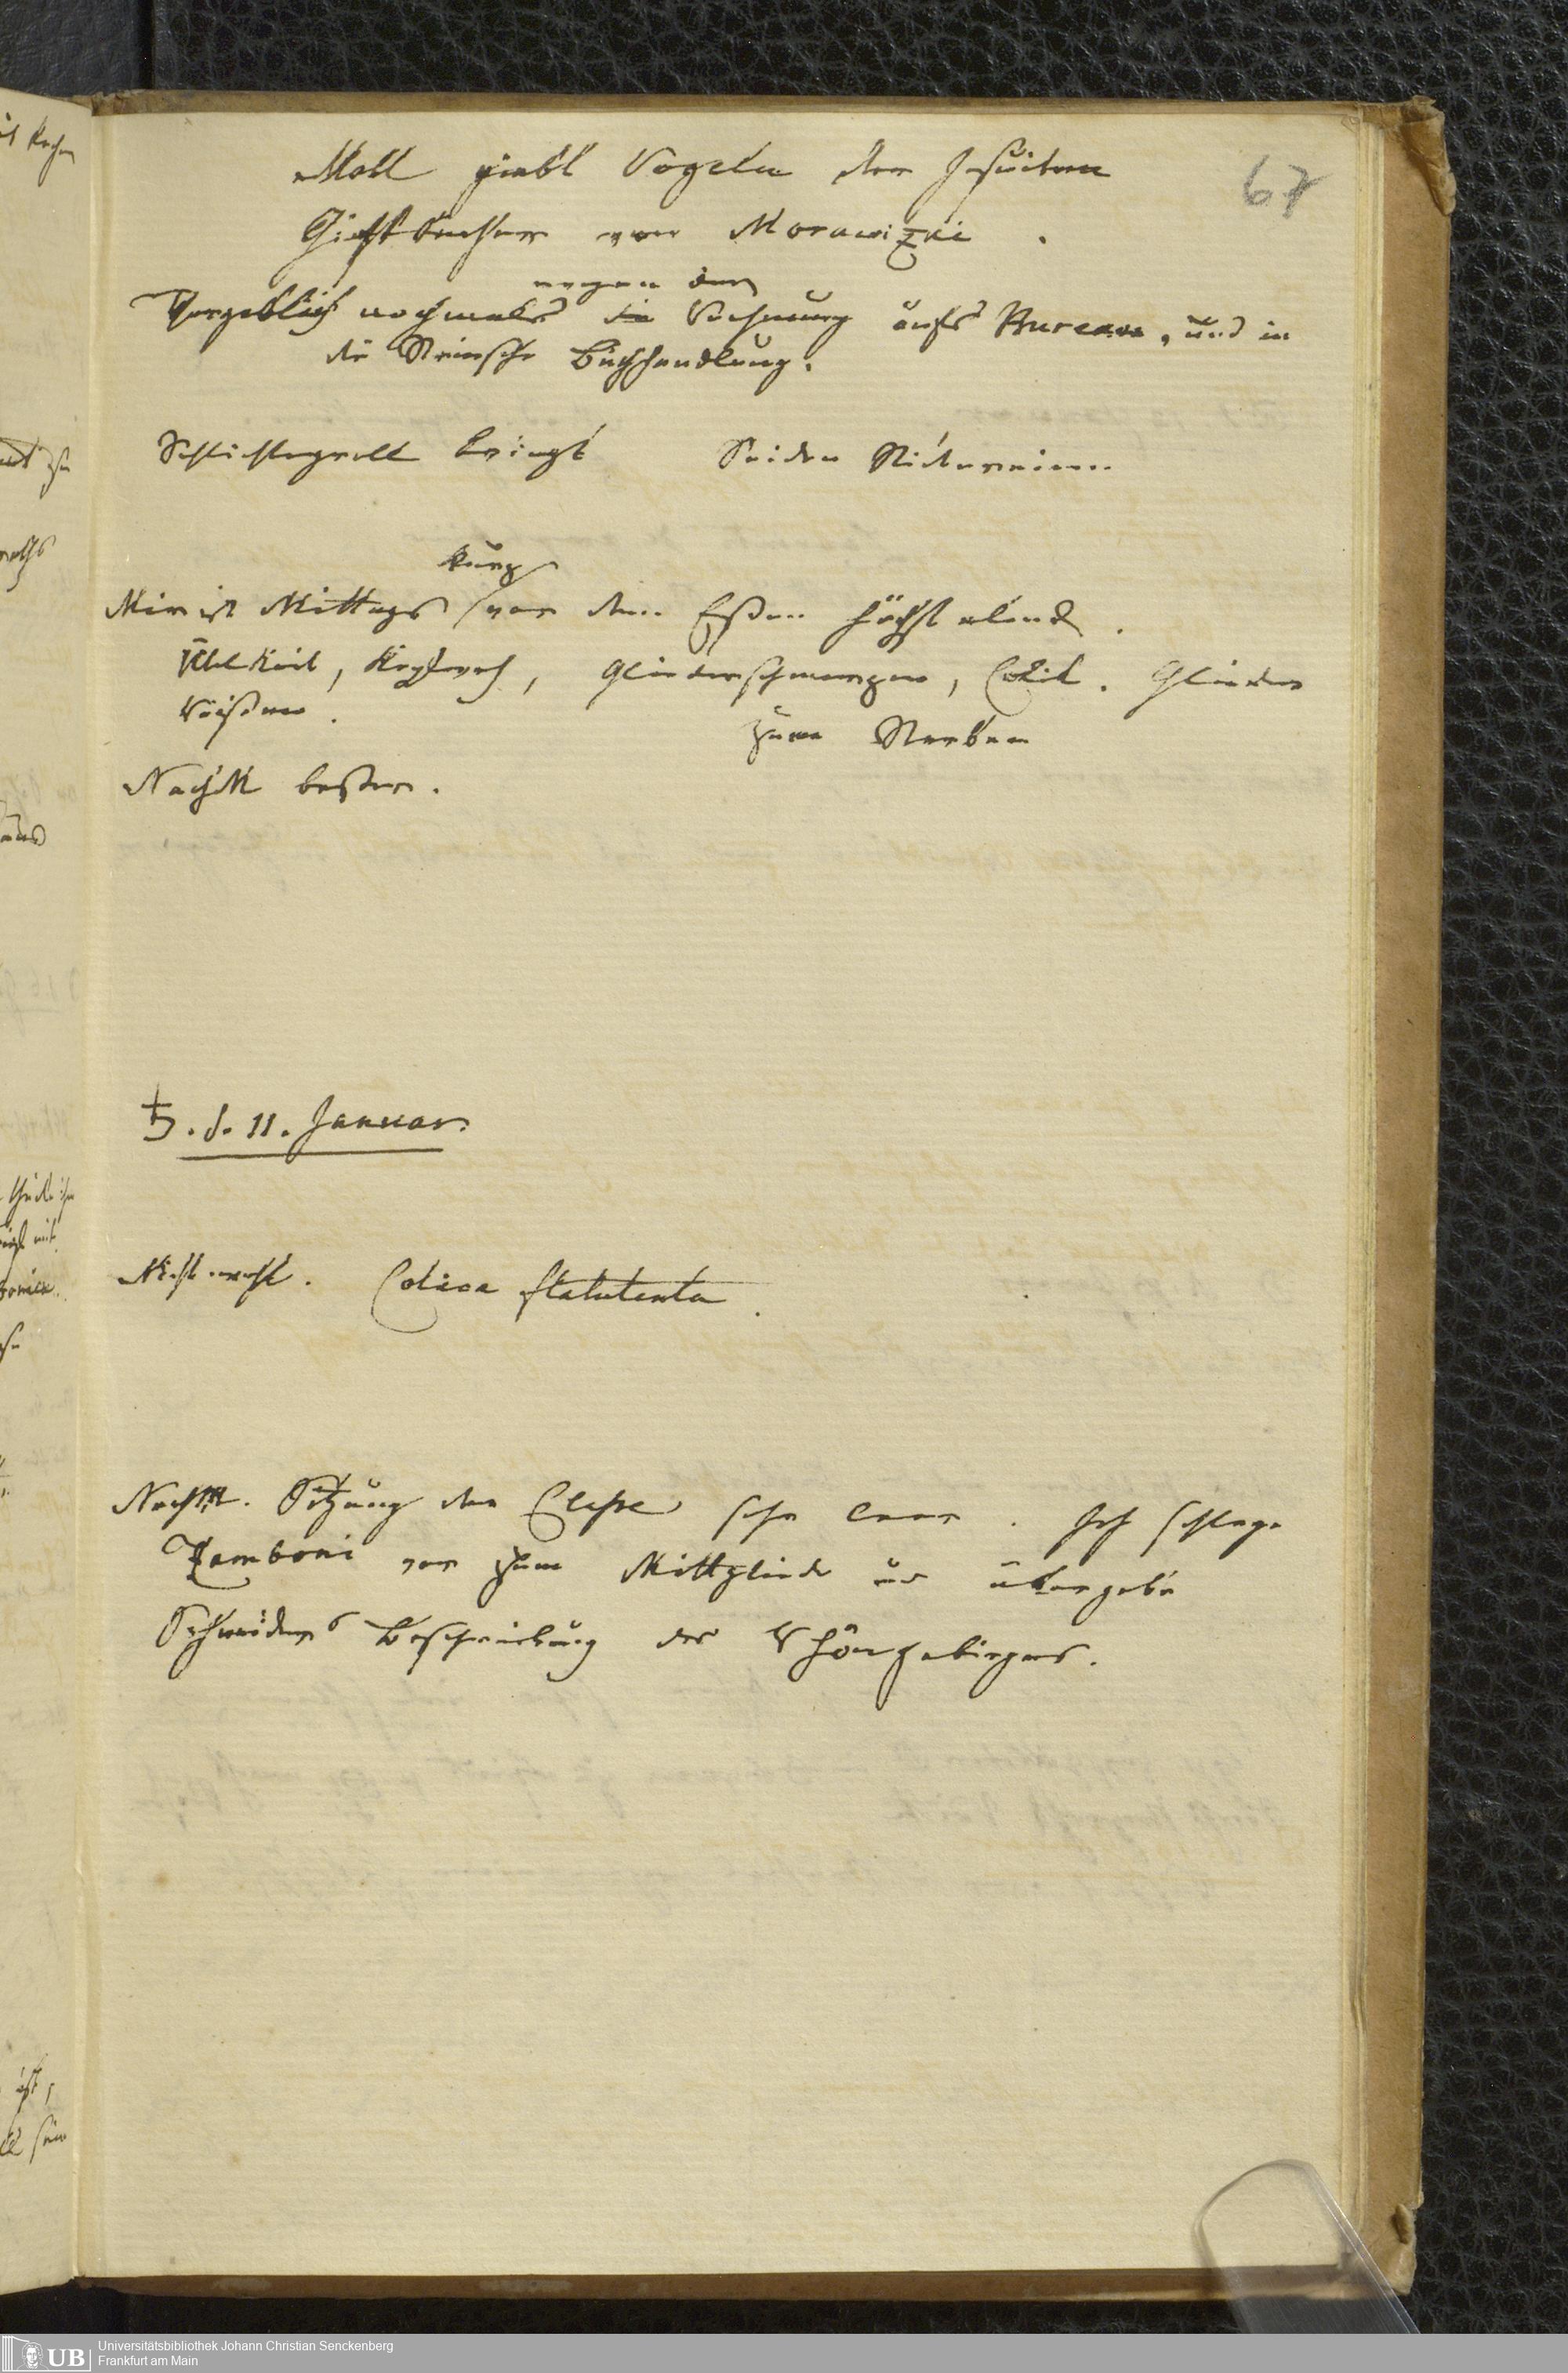 67
Moll giebt Vogeln der Jesuiten
Giftbecher von Morawizki.
wegen der
Vergeblich nochmals die Wohnung aufs Bureau, und in
die Steinsche Buchhandlung.
Schlichtegroll bringt Seiden
kurz
Mir ist Mittags vor dem Eßen höchst elend.
Übelkeit, Kopfweh, Gliederschmerzen, Colik. Glieder
zum Sterben
Nachts besser.
♄. d. 11. Januar.
Nicht wohl. Colica flatulenta.
Nachm. Sitzung der Classe sehr leer. Ich schlage
Zamboni vor zum Mittgliede und übergebe
Schneiders Beschreibung des Rhöngebirges.
UB Universitätsbibliothek Johann Christian Senckenberg
Frankfurt am Main